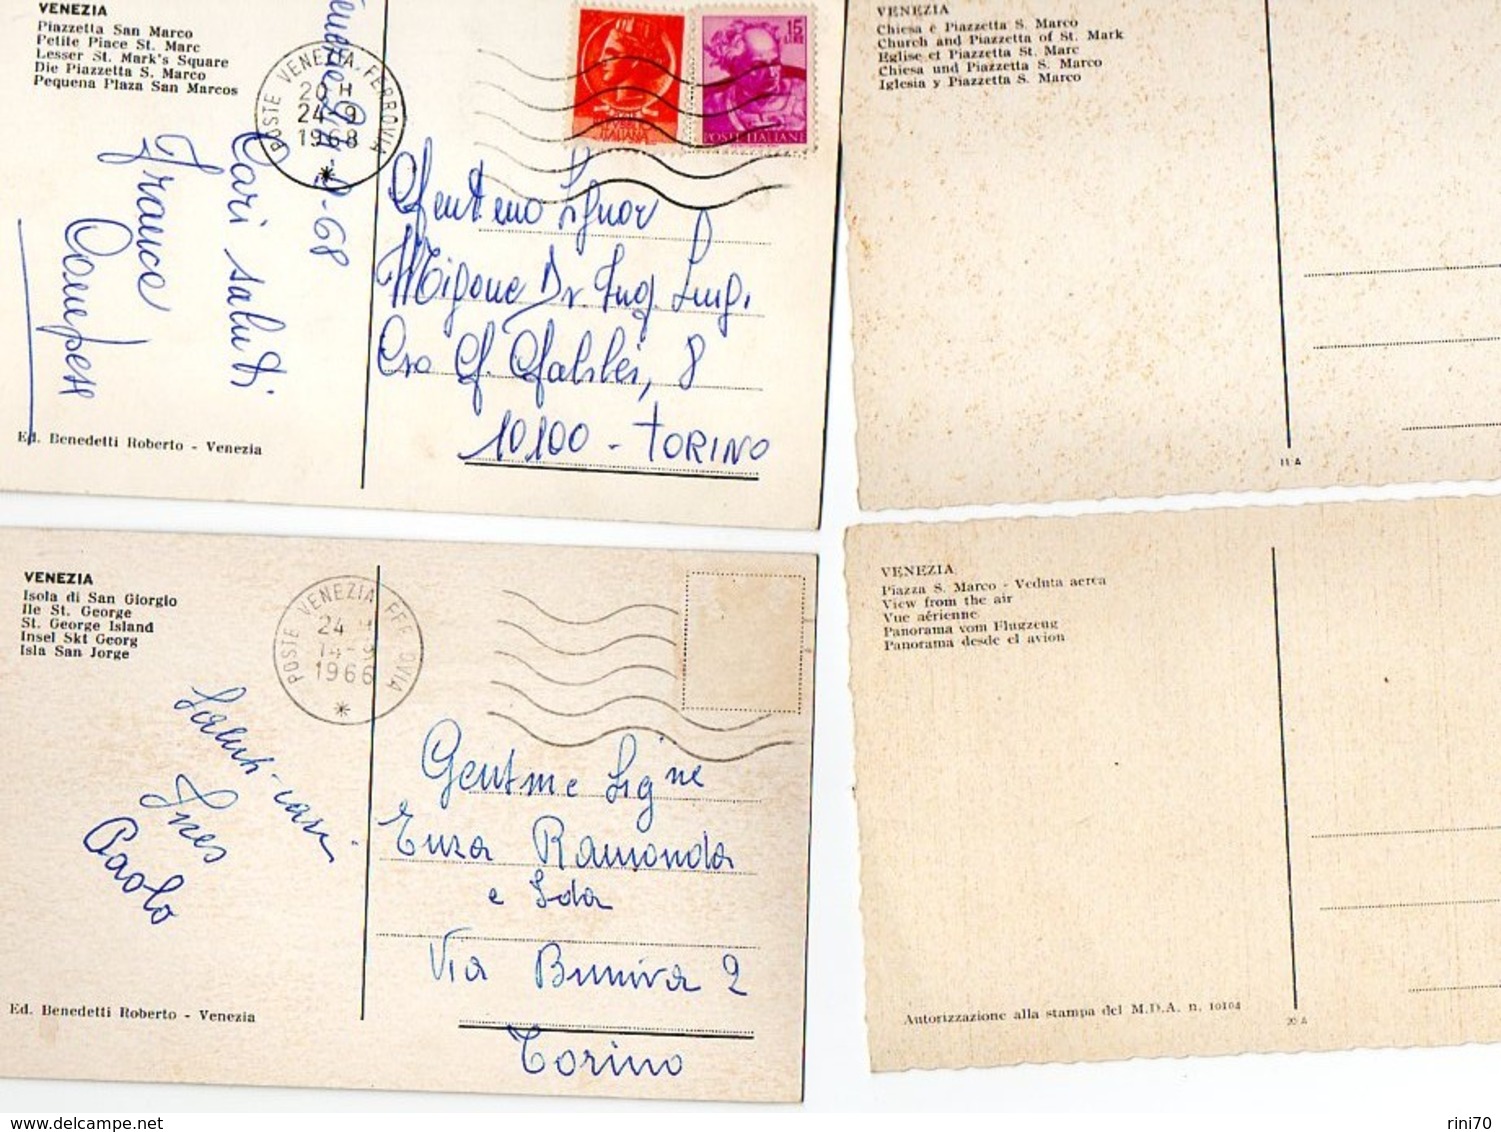 VENEZIA
Piazzetta San Marco
Petite Place St. Marc
Lesser St. Mark's Square
Die Piazzetta S. Marco
Pequena Plaza San Marcos
POSTE VENEZIA FERROVIA
20 H
24-9
1968
15
LIRE
ITALIANA
POSTE ITALIANE
24-9-68
Cari saluti
Franco
Campese
Gent.mo Signor
Migone Dr. Ing. Luigi
C.so G. Galilei, 8
10100 - TORINO
Ed. Benedetti Roberto - Venezia
VENEZIA
Chiesa e Piazzetta S. Marco
Church and Piazzetta of St. Mark
Eglise et Piazzetta St. Marc
Chiesa und Piazzetta S. Marco
Iglesia y Piazzetta S. Marco
11 A
VENEZIA
Isola di San Giorgio
Ile St. George
St. George Island
Insel Skt Georg
Isla San Jorge
POSTE VENEZIA FERROVIA
24 H
14-9
1966
Saluti cari
Ines
Paolo
Gent.me Sig.ne
Enza Ramonda
e Ida
Via Buniva 2
Torino
Ed. Benedetti Roberto - Venezia
VENEZIA
Piazza S. Marco - Veduta aerea
View from the air
Vue aérienne
Panorama vom Flugzeug
Panorama desde el avion
Autorizzazione alla stampa del M.D.A. n. 10104
20 A
delcampe.net
rini70